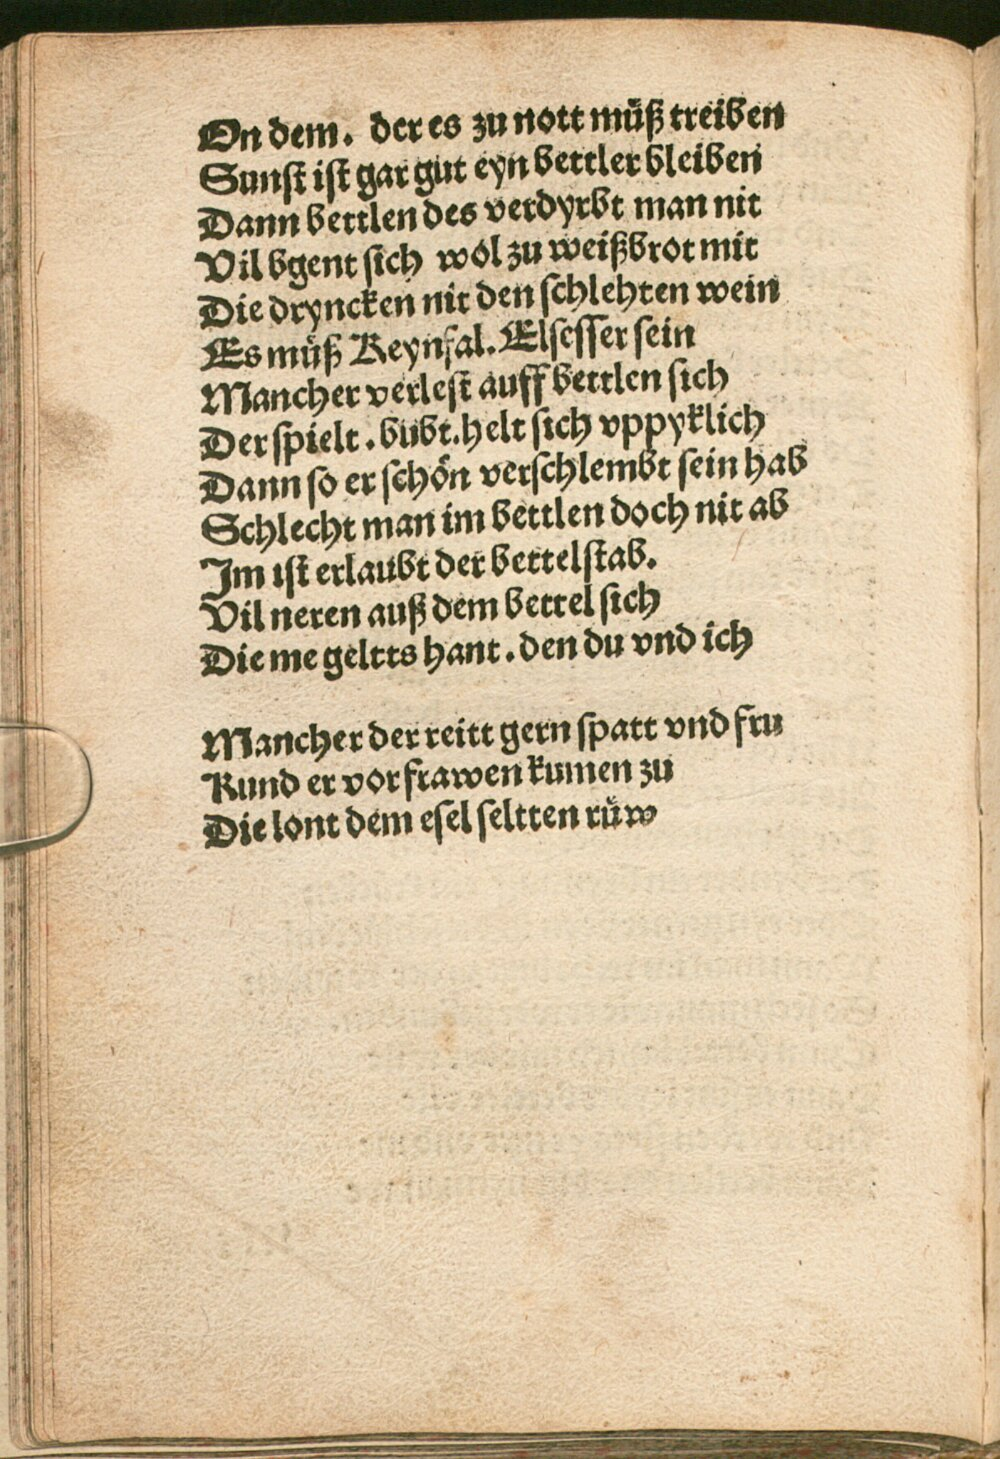 On dem. der es zu nott muͤß treiben
Sunst ist gar gut eyn bettler bleiben
Dann bettlen des verdyrbt man nit
Vil bgent sich wol zu weißbrot mit
Die dryncken nit den schlehten wein
Es muͤß Reynfal. Elsesser sein
Mancher verlest auff bettlen sich
Der spielt. bubt. helt sich vppyklich
Dann so er schoͤn verschlembt sein hab
Schlecht man im bettlen doch nit ab
Im ist erlaubt der bettelstab.
Vil neren auß dem bettel sich
Die me geltts hant. den du vnd ich

Mancher der reitt gern spatt vnd fru
Kund er vor frawen kumen zu
Die lont dem esel seltten ruͤw